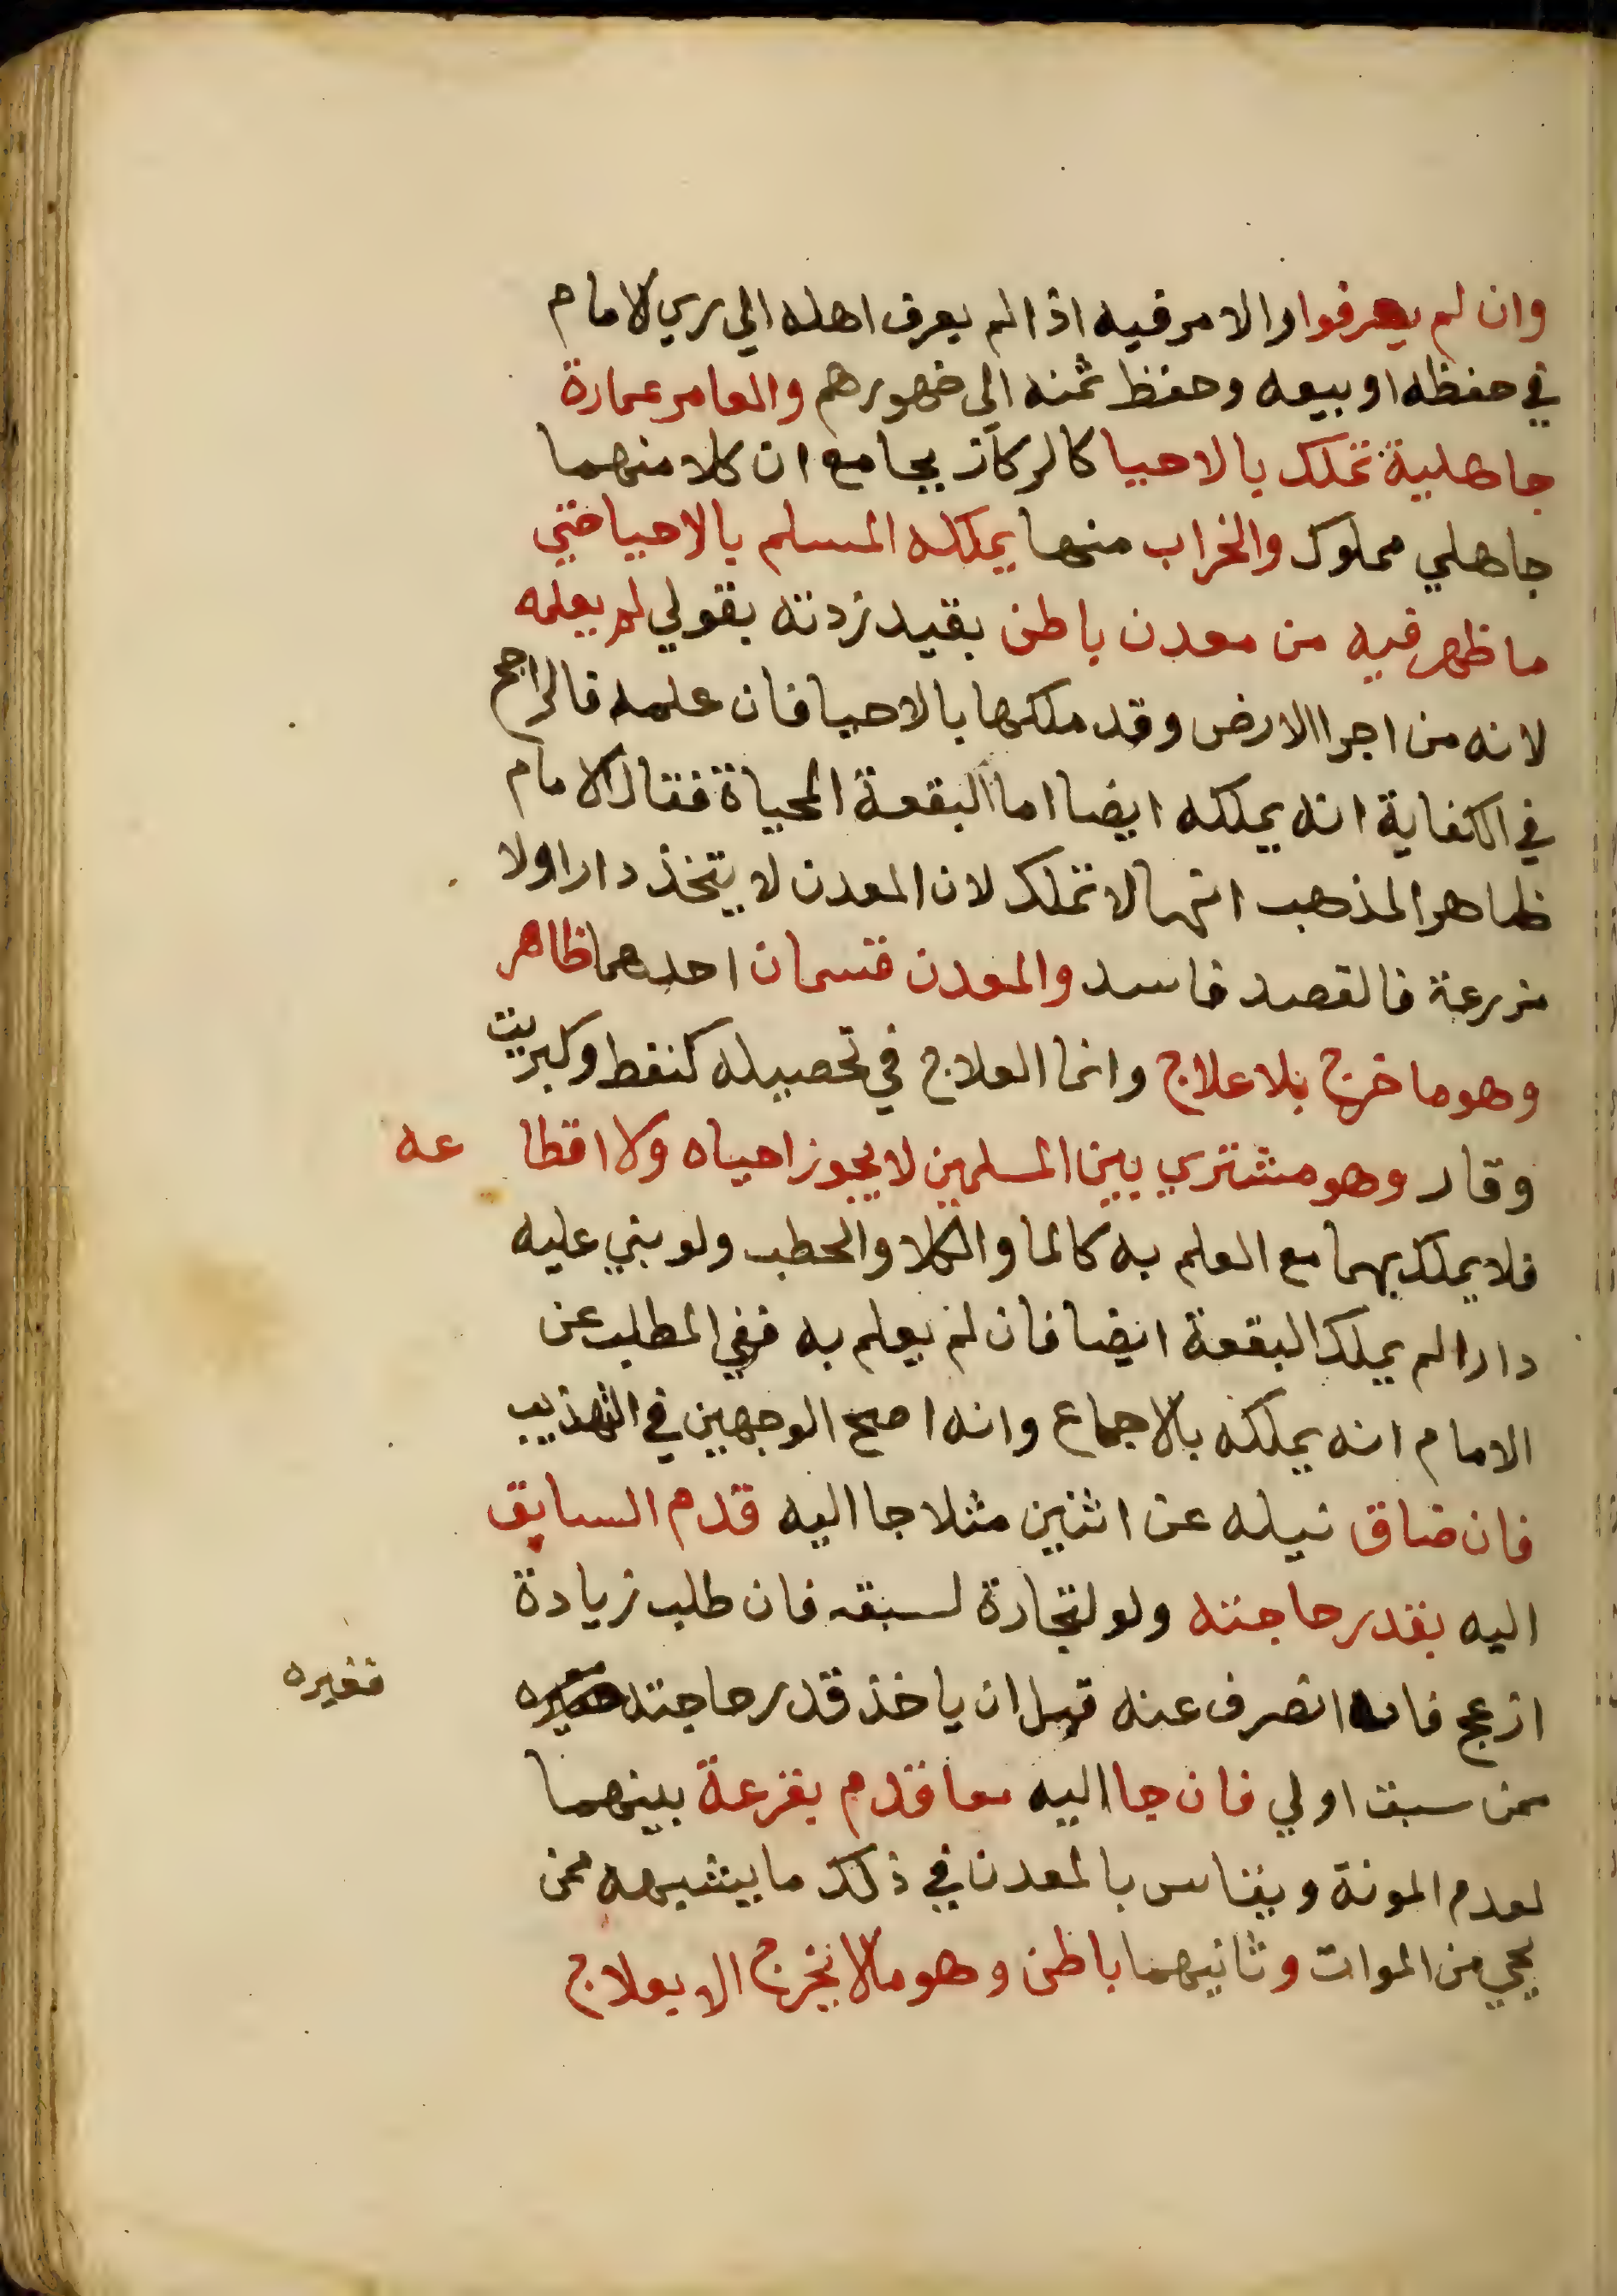 وان لم يعرفوا والامر فيه اذا لم يعرف اهله الي راي الامام
في حفظه او بيعه وحفظ ثمنه الي ضهورهم والعامر عمارة
جاهلية تملك بالاحيا كالركاز بجامع ان كلا منهما
جاهلي مملوك والخراب منها يملكه المسلم بالاحيا حتي
ما ظهر فيه من معدن باطن بقيد زدته بقولي لم يعلمه
لانه من اجرا الارض وقد ملكها بالاحيا فان علمه فالراجح
في الكفاية انه يملكه ايضا اما البقعة المحياة فقال الامام
ظاهر المذهب انها لا تملك لان المعدن لا يتخذ دارا ولا
مزرعة فالقصد فاسد والمعدن قسمان احدهما ظاهر
وهو ما خرج بلا علاج وانما العلاج في تحصيله كنفط وكبريت
وقار وهو مشتري بين المسلمين لا يجوز احياه ولا اقطا عه
فلا يملك بهما مع العلم به كالما والكلا والحطب ولو بني عليه
دارا لم يملك البقعة ايضا فان لم يعلم به ففي المطلب عن
الامام انه يملكه بالاجماع وانه اصح الوجهين في التهذيب
فان ضاق نيله عن اثنين مثلا جا اليه قدم السابق
اليه بقدر حاجته ولو لتجارة لسبقه فان طلب زيادة
ازعج فان انصرف عنه قبل ان ياخذ قدر حاجته
فغيره
ممن سبق اولي فان جا اليه معا قدم بقرعة بينهما
لعدم المونة ويقاس بالمعدن في ذلك ما يشبهه ممن
يحي من الموات وثانيهما باطن وهو ما لا يخرج الا بعلاج